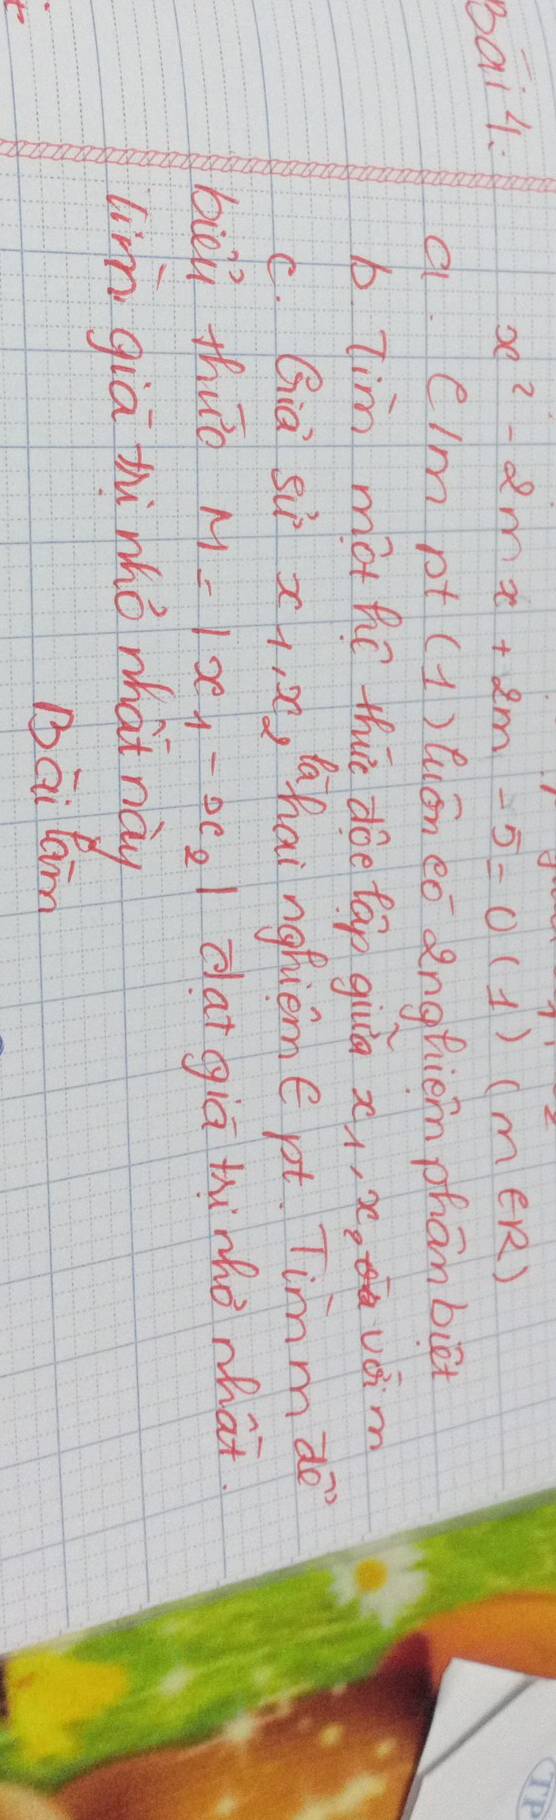 Bài 4:
x² - 2mx + 2m - 5 = 0 (1) (m ∈ R)
a. C/m pt (1) luôn có 2 nghiệm phân biệt
b. Tìm một hệ thức độc lập giữa x₁, x₂ với m
c. Giả sử x₁, x₂ là hai nghiệm € pt. Tìm m để
biểu thức M = |x₁ - x₂| đạt giá trị nhỏ nhất.
tìm giá trị nhỏ nhất này
Bài làm
TP